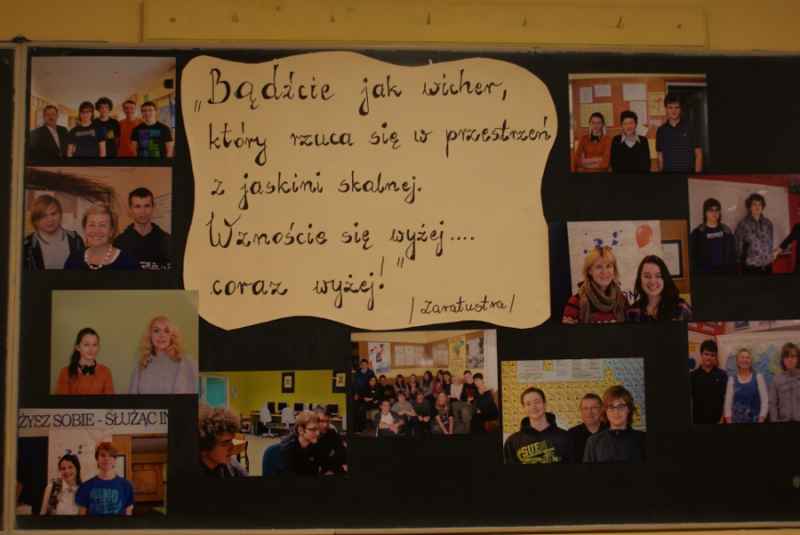 „Bądźcie jak wicher,
który rzuca się w przestrzeń
z jaskini skalnej.
Wznoście się wyżej....
coraz wyżej!"
/Zaratustra/
ŻYSZ SOBIE - SŁUŻĄC IN